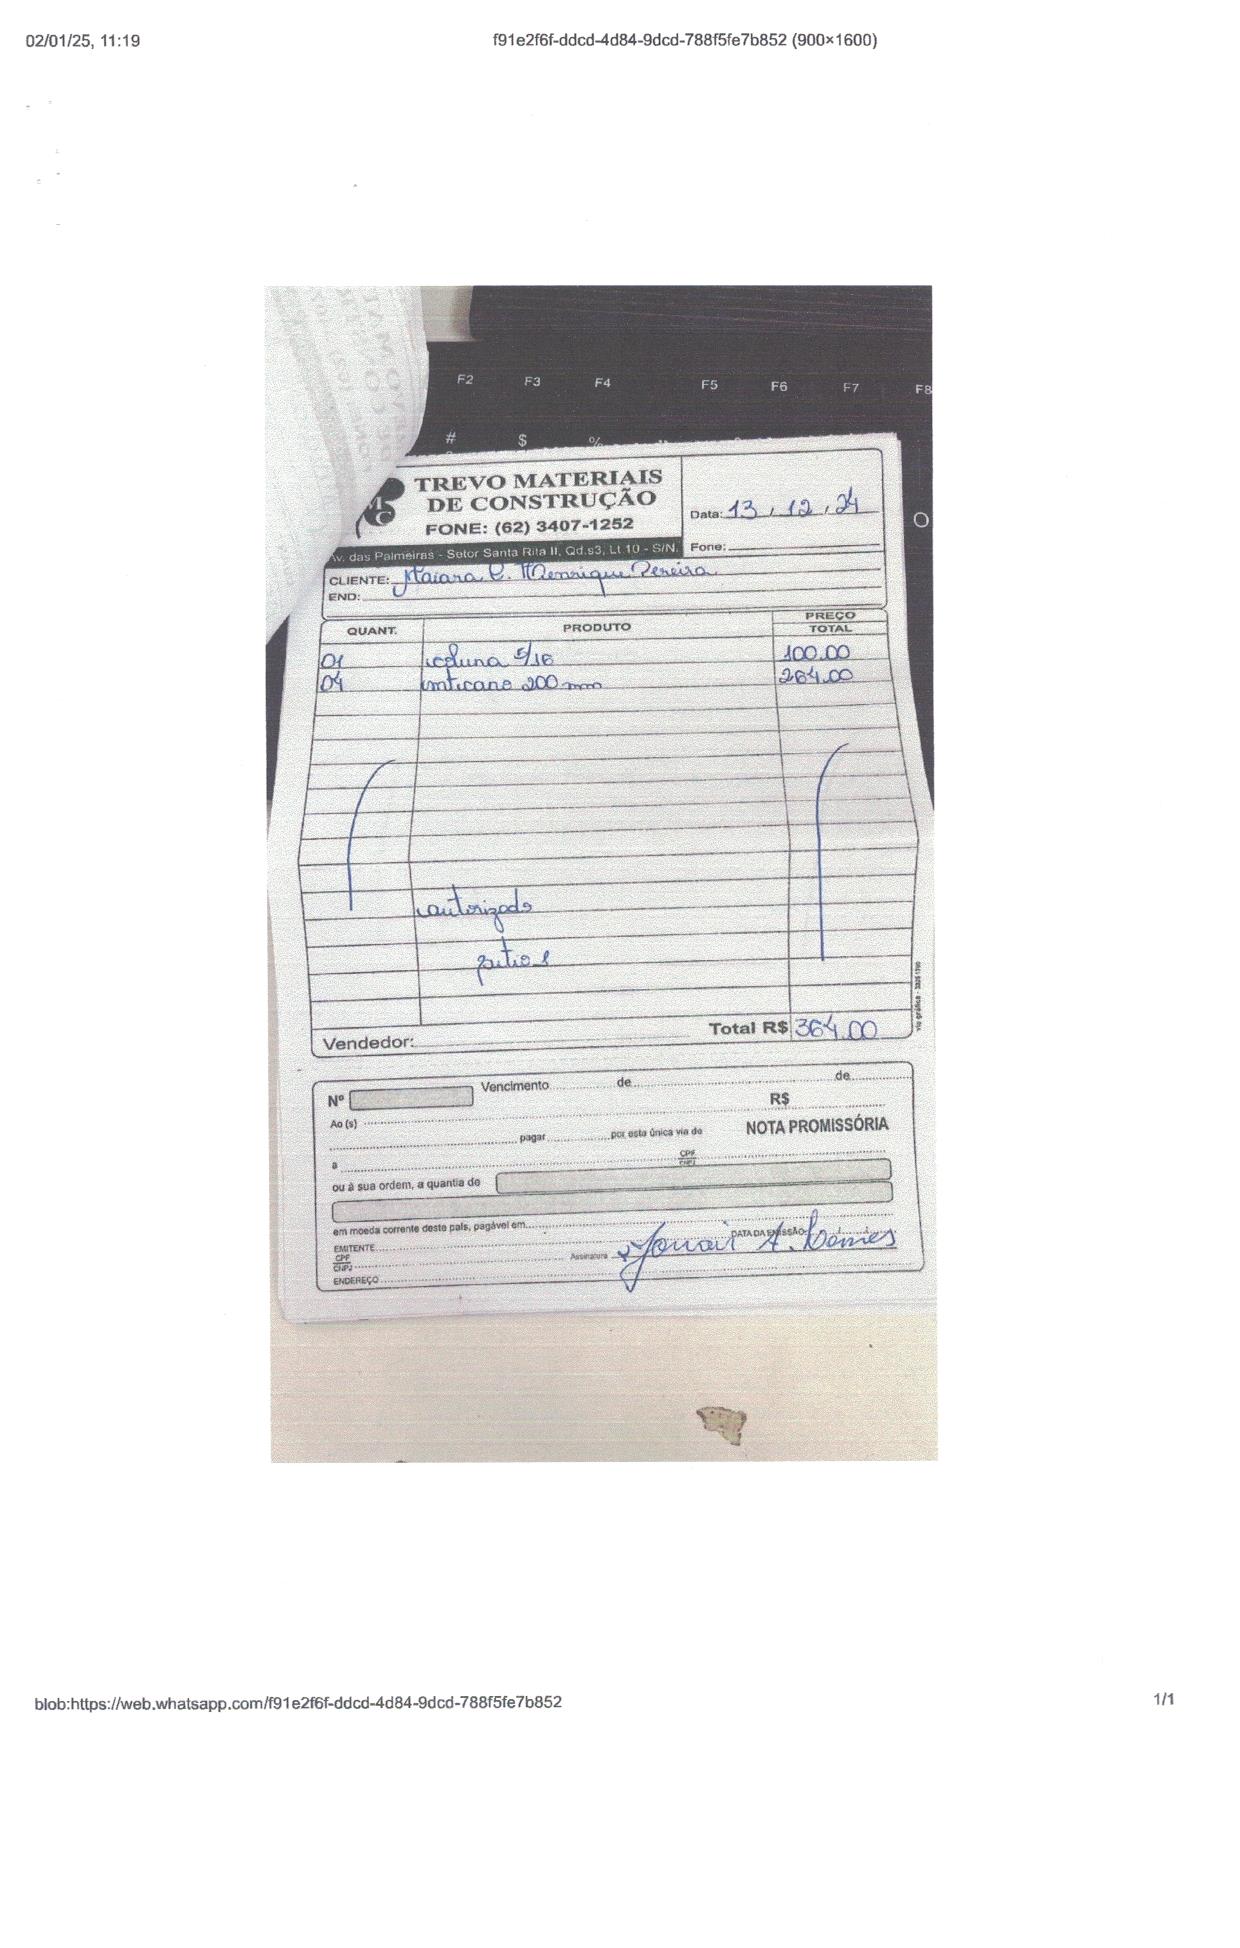 02/01/25, 11:19 f91e2f6f-ddcd-4d84-9dcd-788f5fe7b852 (900×1600)
F2 F3 F4 F5 F6 F7 F8
# $ %
O
TREVO MATERIAIS
DE CONSTRUÇÃO
FONE: (62) 3407-1252
Data: 13 , 12 , 24
v. das Palmeiras - Setor Santa Rita II, Qd.s3, Lt 10 - S/N. Fone:
CLIENTE: Maiara C. Henrique Pereira
END:
QUANT. PRODUTO PREÇO TOTAL
01 coluna 5/16 100.00
04 200 mm 264.00
autorizado
Total R$ 364.00
Vendedor:
via gráfica -
Nº Vencimento de de
R$
Ao (s)
pagar por esta única via de NOTA PROMISSÓRIA
a CPF CNPJ
ou à sua ordem, a quantia de
em moeda corrente deste país, pagável em
EMITENTE DATA DA EMISSÃO
CPF
CNPJ Assinatura
ENDEREÇO
blob:https://web.whatsapp.com/f91e2f6f-ddcd-4d84-9dcd-788f5fe7b852 1/1